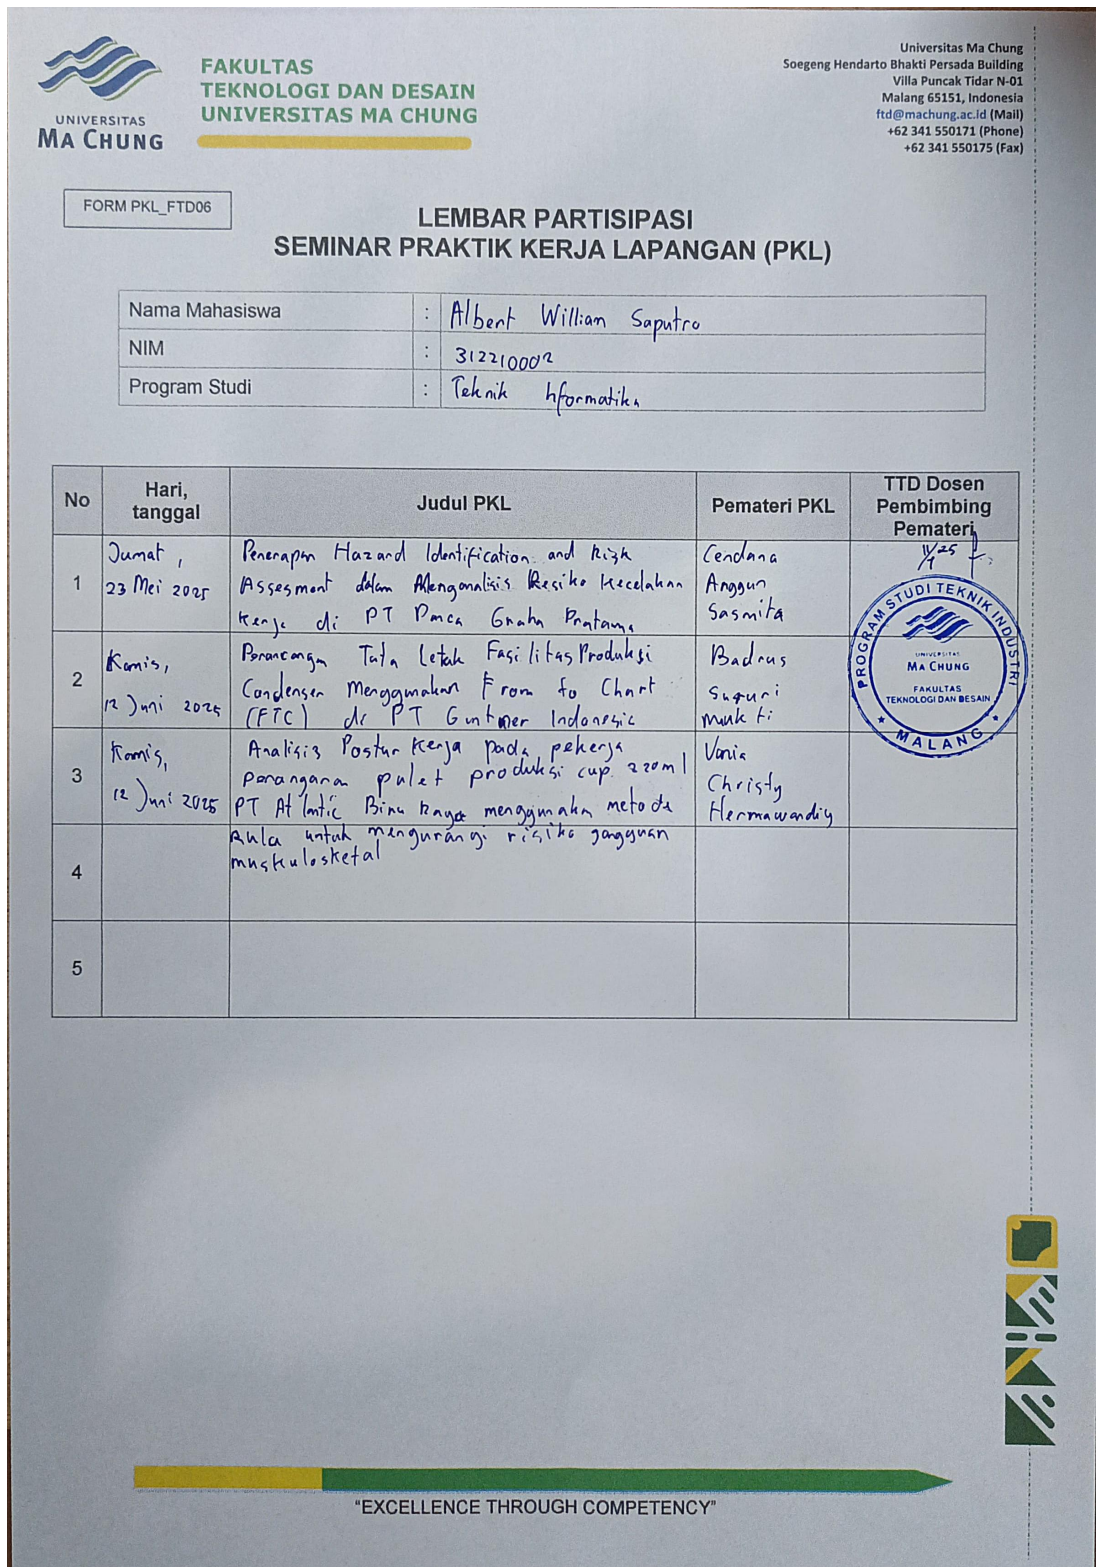 UNIVERSITAS
MA CHUNG
FAKULTAS
TEKNOLOGI DAN DESAIN
UNIVERSITAS MA CHUNG
Universitas Ma Chung
Soegeng Hendarto Bhakti Persada Building
Villa Puncak Tidar N-01
Malang 65151, Indonesia
ftd@machung.ac.id (Mail)
+62 341 550171 (Phone)
+62 341 550175 (Fax)
FORM PKL_FTD06
LEMBAR PARTISIPASI
SEMINAR PRAKTIK KERJA LAPANGAN (PKL)
Nama Mahasiswa : Albert Willian Saputro
NIM : 312210002
Program Studi : Teknik Informatika
No Hari, tanggal Judul PKL Pemateri PKL TTD Dosen Pembimbing Pemateri
1 Jumat, 23 Mei 2025
Penerapan Hazard Identification and Risk
Assesment dalam Menganalisis Resiko Kecelakan
Kerja di PT Graha Pratama
Cendana
Anggun
Sasmita
2 Kamis, 12 Juni 2025
Perancangan Tata Letak Fasilitas Produksi
Condenser Menggunakan From to Chart
(FTC) di PT Guntner Indonesia
Badrus
Mukti
3 Kamis, 12 Juni 2025
Analisis Postur Kerja pada pekerja
palet produksi cup 220ml
PT Atlantic Biru Raya menggunakan metode
Rula untuk mengurangi risiko gangguan
muskulosketal
Vania
Christy
Hermawandiy
4
5
PROGRAM STUDI TEKNIK INDUSTRI
UNIVERSITAS
MA CHUNG
FAKULTAS
TEKNOLOGI DAN DESAIN
MALANG
"EXCELLENCE THROUGH COMPETENCY"